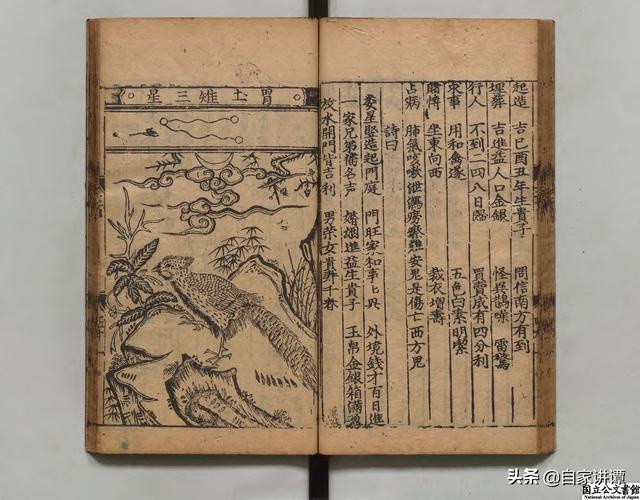 起造 吉己酉丑年生貴子 問信南方有到
埋葬 吉進益人口金銀 怪異鵲噪 雷驚
行人 不到二四八日臨 買賣成有四分利
求事 用和 遂 五色白素明潔
賭博 坐東向西 裁衣增壽
占病 肺氣咳嗽 安 是傷亡西方鬼
詩曰
婁星豎造起門庭 門旺家和事 外境錢才百日進
一家兄弟播名吉 婚姻進益生貴子 玉帛金銀箱滿
放水開門皆吉利 男榮女貴壽千春
胃土雉三星
头条 @自家讲谭
国立公文書館
National Archives of Japan